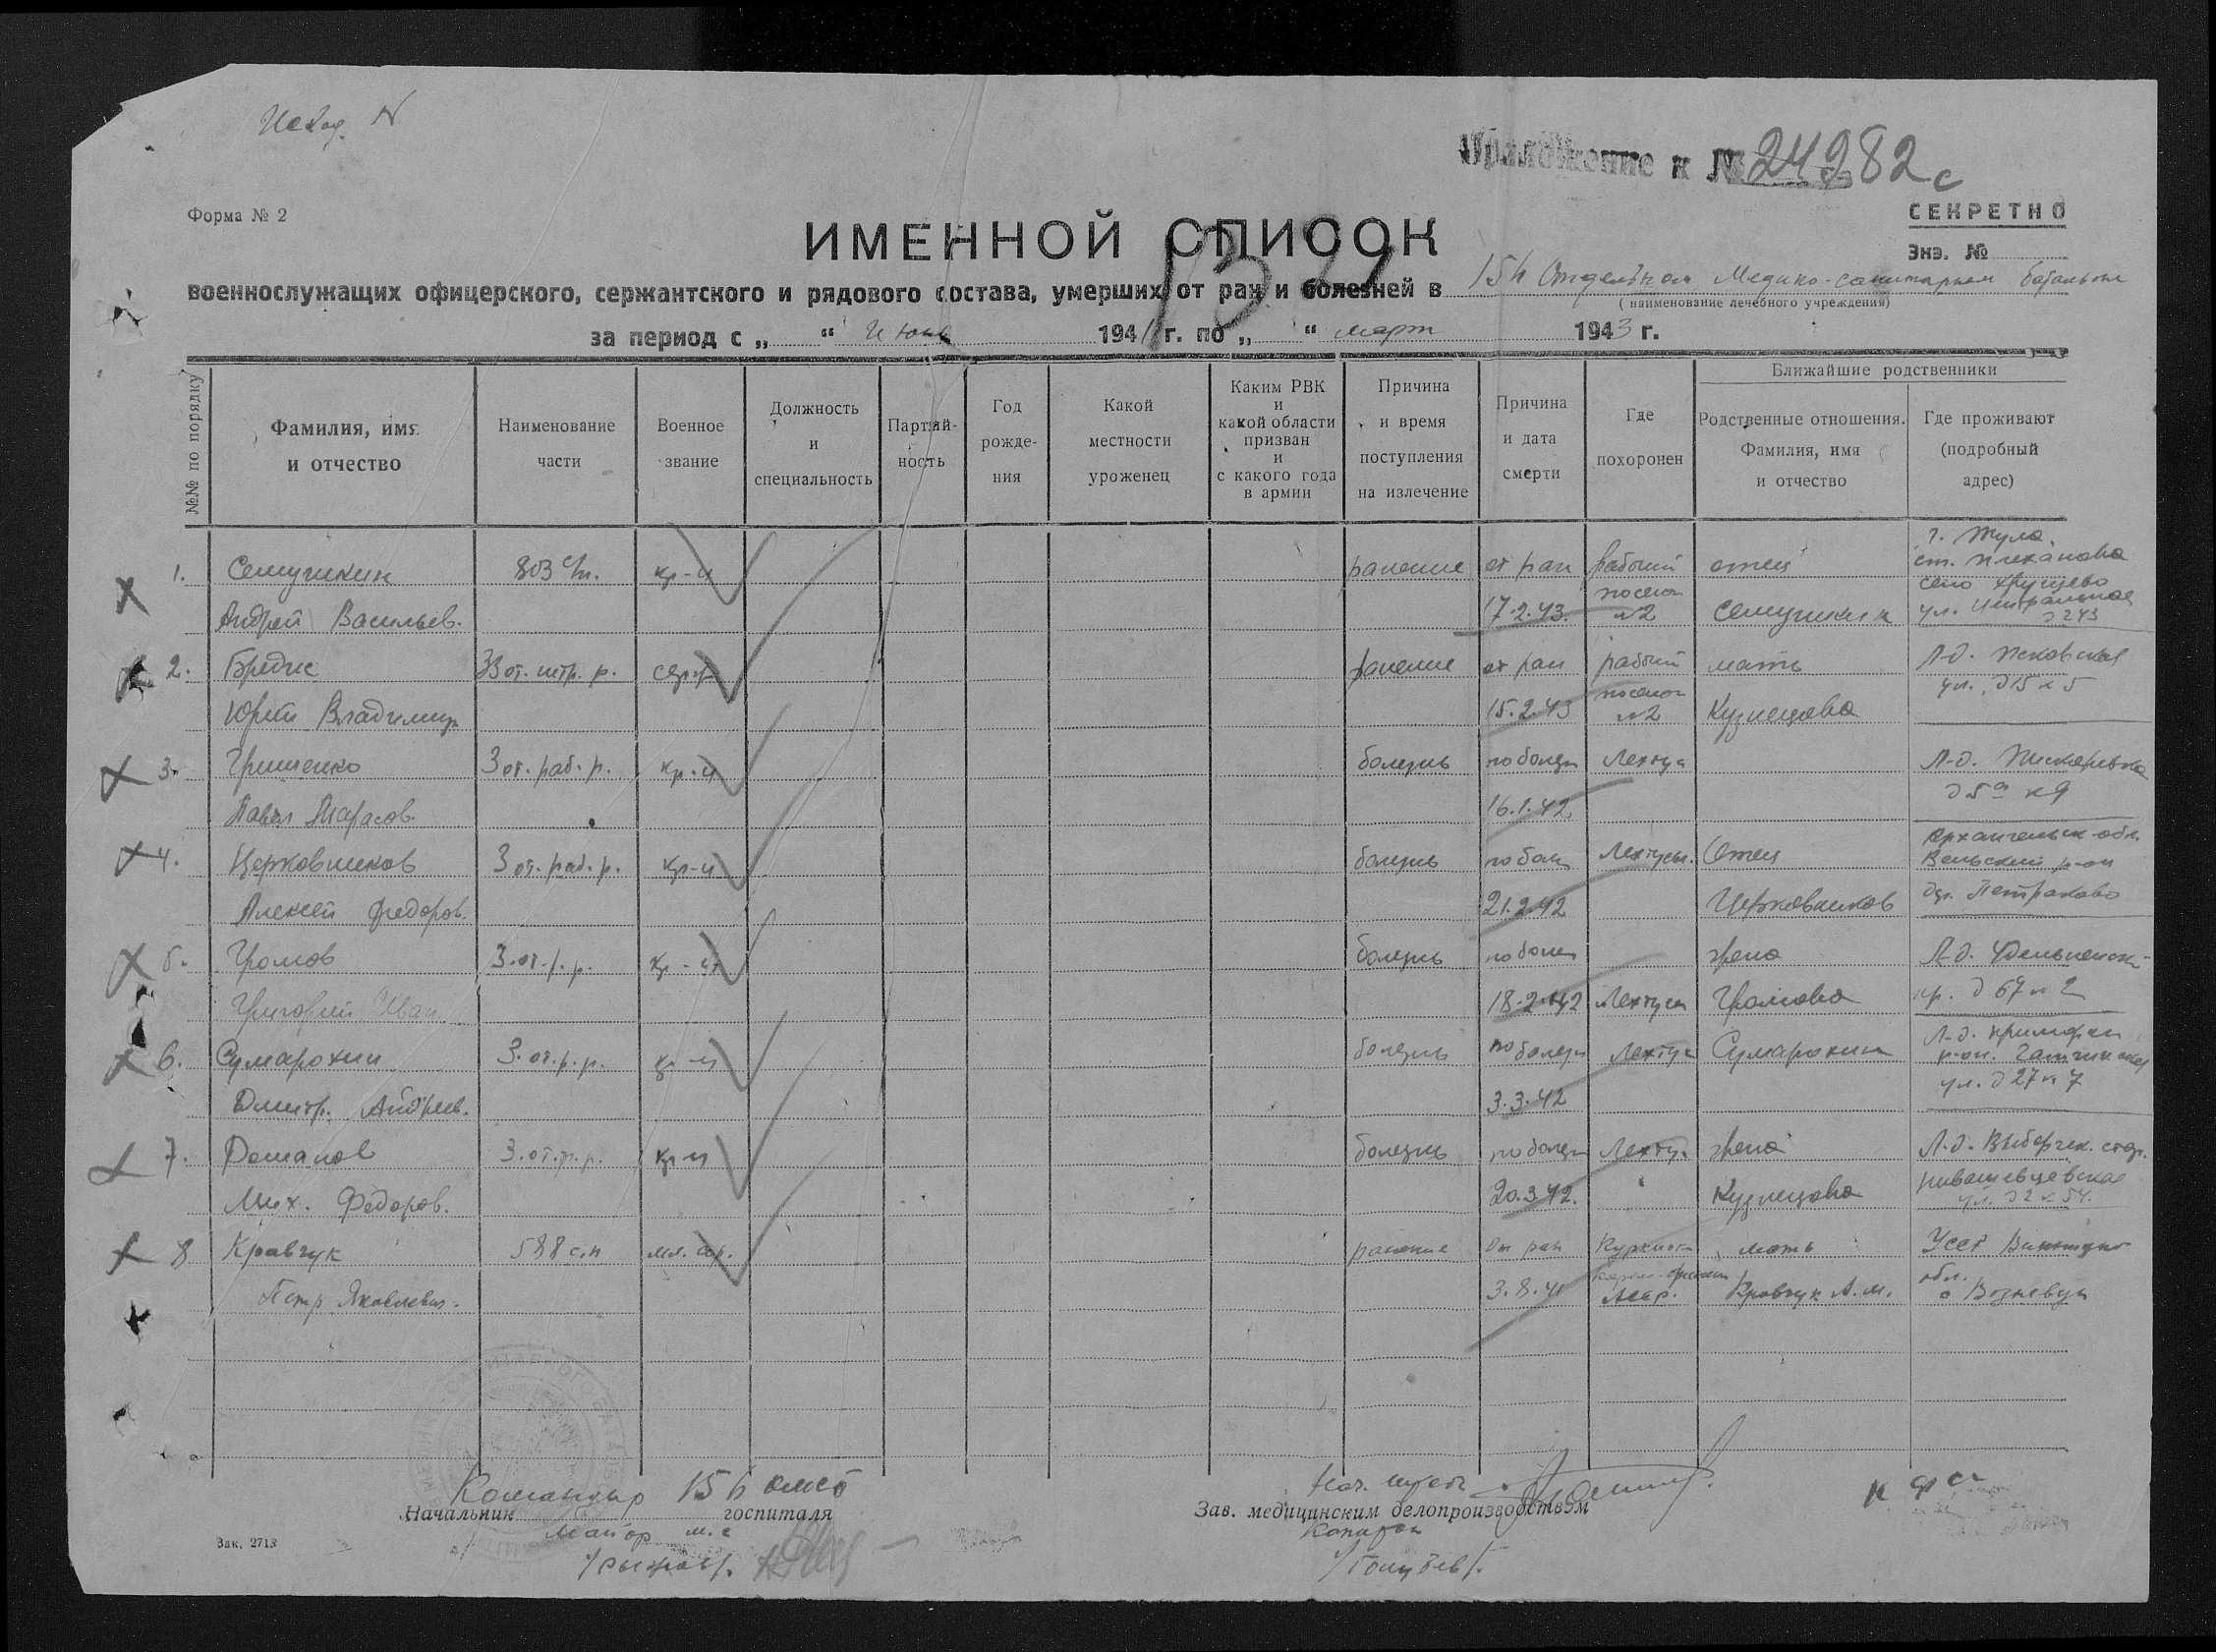 Исход. N
Приложение к № 24982с
Форма № 2
СЕКРЕТНО
ИМЕННОЙ СПИСОК
Экз. №
военнослужащих офицерского, сержантского и рядового состава, умерших от ран и болезней в 15й Отдельном Медико-санитарном батальоне
(наименование лечебного учреждения)
за период с „ “ Июнь 1941 г. по „ “ март 1943 г.
№№ по порядку
Фамилия, имя и отчество
Наименование части
Военное звание
Должность и специальность
Партийность
Год рождения
Какой местности уроженец
Каким РВК и какой области призван и с какого года в армии
Причина и время поступления на излечение
Причина и дата смерти
Где похоронен
Ближайшие родственники
Родственные отношения. Фамилия, имя и отчество
Где проживают (подробный адрес)
1. Семушкин 803 с/п. кр-ц ранение от ран рабочий отец г. Тула. ст. Плеханово
Андрей Васильев. 17.2.43. поселок №2 Семушкин село Хрущево ул. Центральная д 243
2. Бредис 33 от. штр. р. серж ранение от ран рабочий мать Л-д. Псковская
Юрий Владимир 15.2.43 поселок №2 Кузнецова ул. д 15 к 5
3. Гришенко 3 от. раб. р. кр-ц болезнь по болезн Лехтуси Л-д. Пискаревка
Павел Тарасов. 16.1.42 д 5а к 9
4. Церковников 3 от. раб. р. кр-ц болезнь по бол Лехтусы. Отец Архангельск обл. Вельский р-он
Алексей Федоров. 21.2.42 Церковников дер. Петраково
5. Громов 3.от.р.р. кр-ц болезнь по болез жена Л-д. Удельненский
Григорий Иван 18.2.42 Лехтуси Громова пр. д 67 к 2
6. Сумарокин 3.от.р.р. кр-ц болезнь по болезн Лехтуси Сумарокин Л-д. р-он. Гатчинская
Дмитр. Андреев. 3.3.42 ул. д 27 к 7
7. Романов 3.от.р.р. кр-ц болезнь по болезн Лехтуси жена Л-д. Выборгск. стор.
Мих. Федоров. 20.3.42. Кузнецова ул. д 2 к 54.
8 Кравчук 588 с.п мл. сер. ранение От ран мать
Петр Яковлевич. 3.8.41 Карело-финская АССР. Кравчук А.М. обл.
Командир 15й омсб
Начальник госпиталя
майор м.с
/Рыжов/.
Нач. штаба
Зав. медицинским делопроизводством
Капитан
/Голубев/.
Зак. 2713